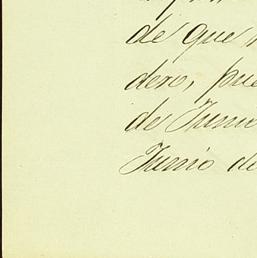 de que
dero, pue
de Junio
Junio de